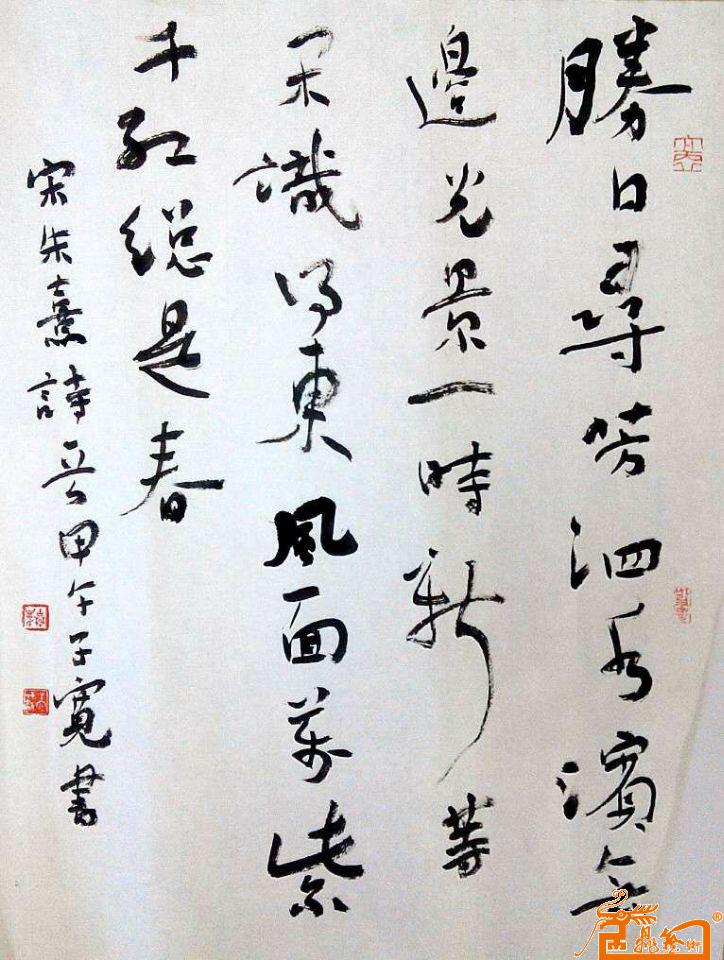 勝日尋芳泗水濱無
邊光景一時新等
閑識得東風面萬紫
千紅總是春
宋朱熹詩 甲午子寬書